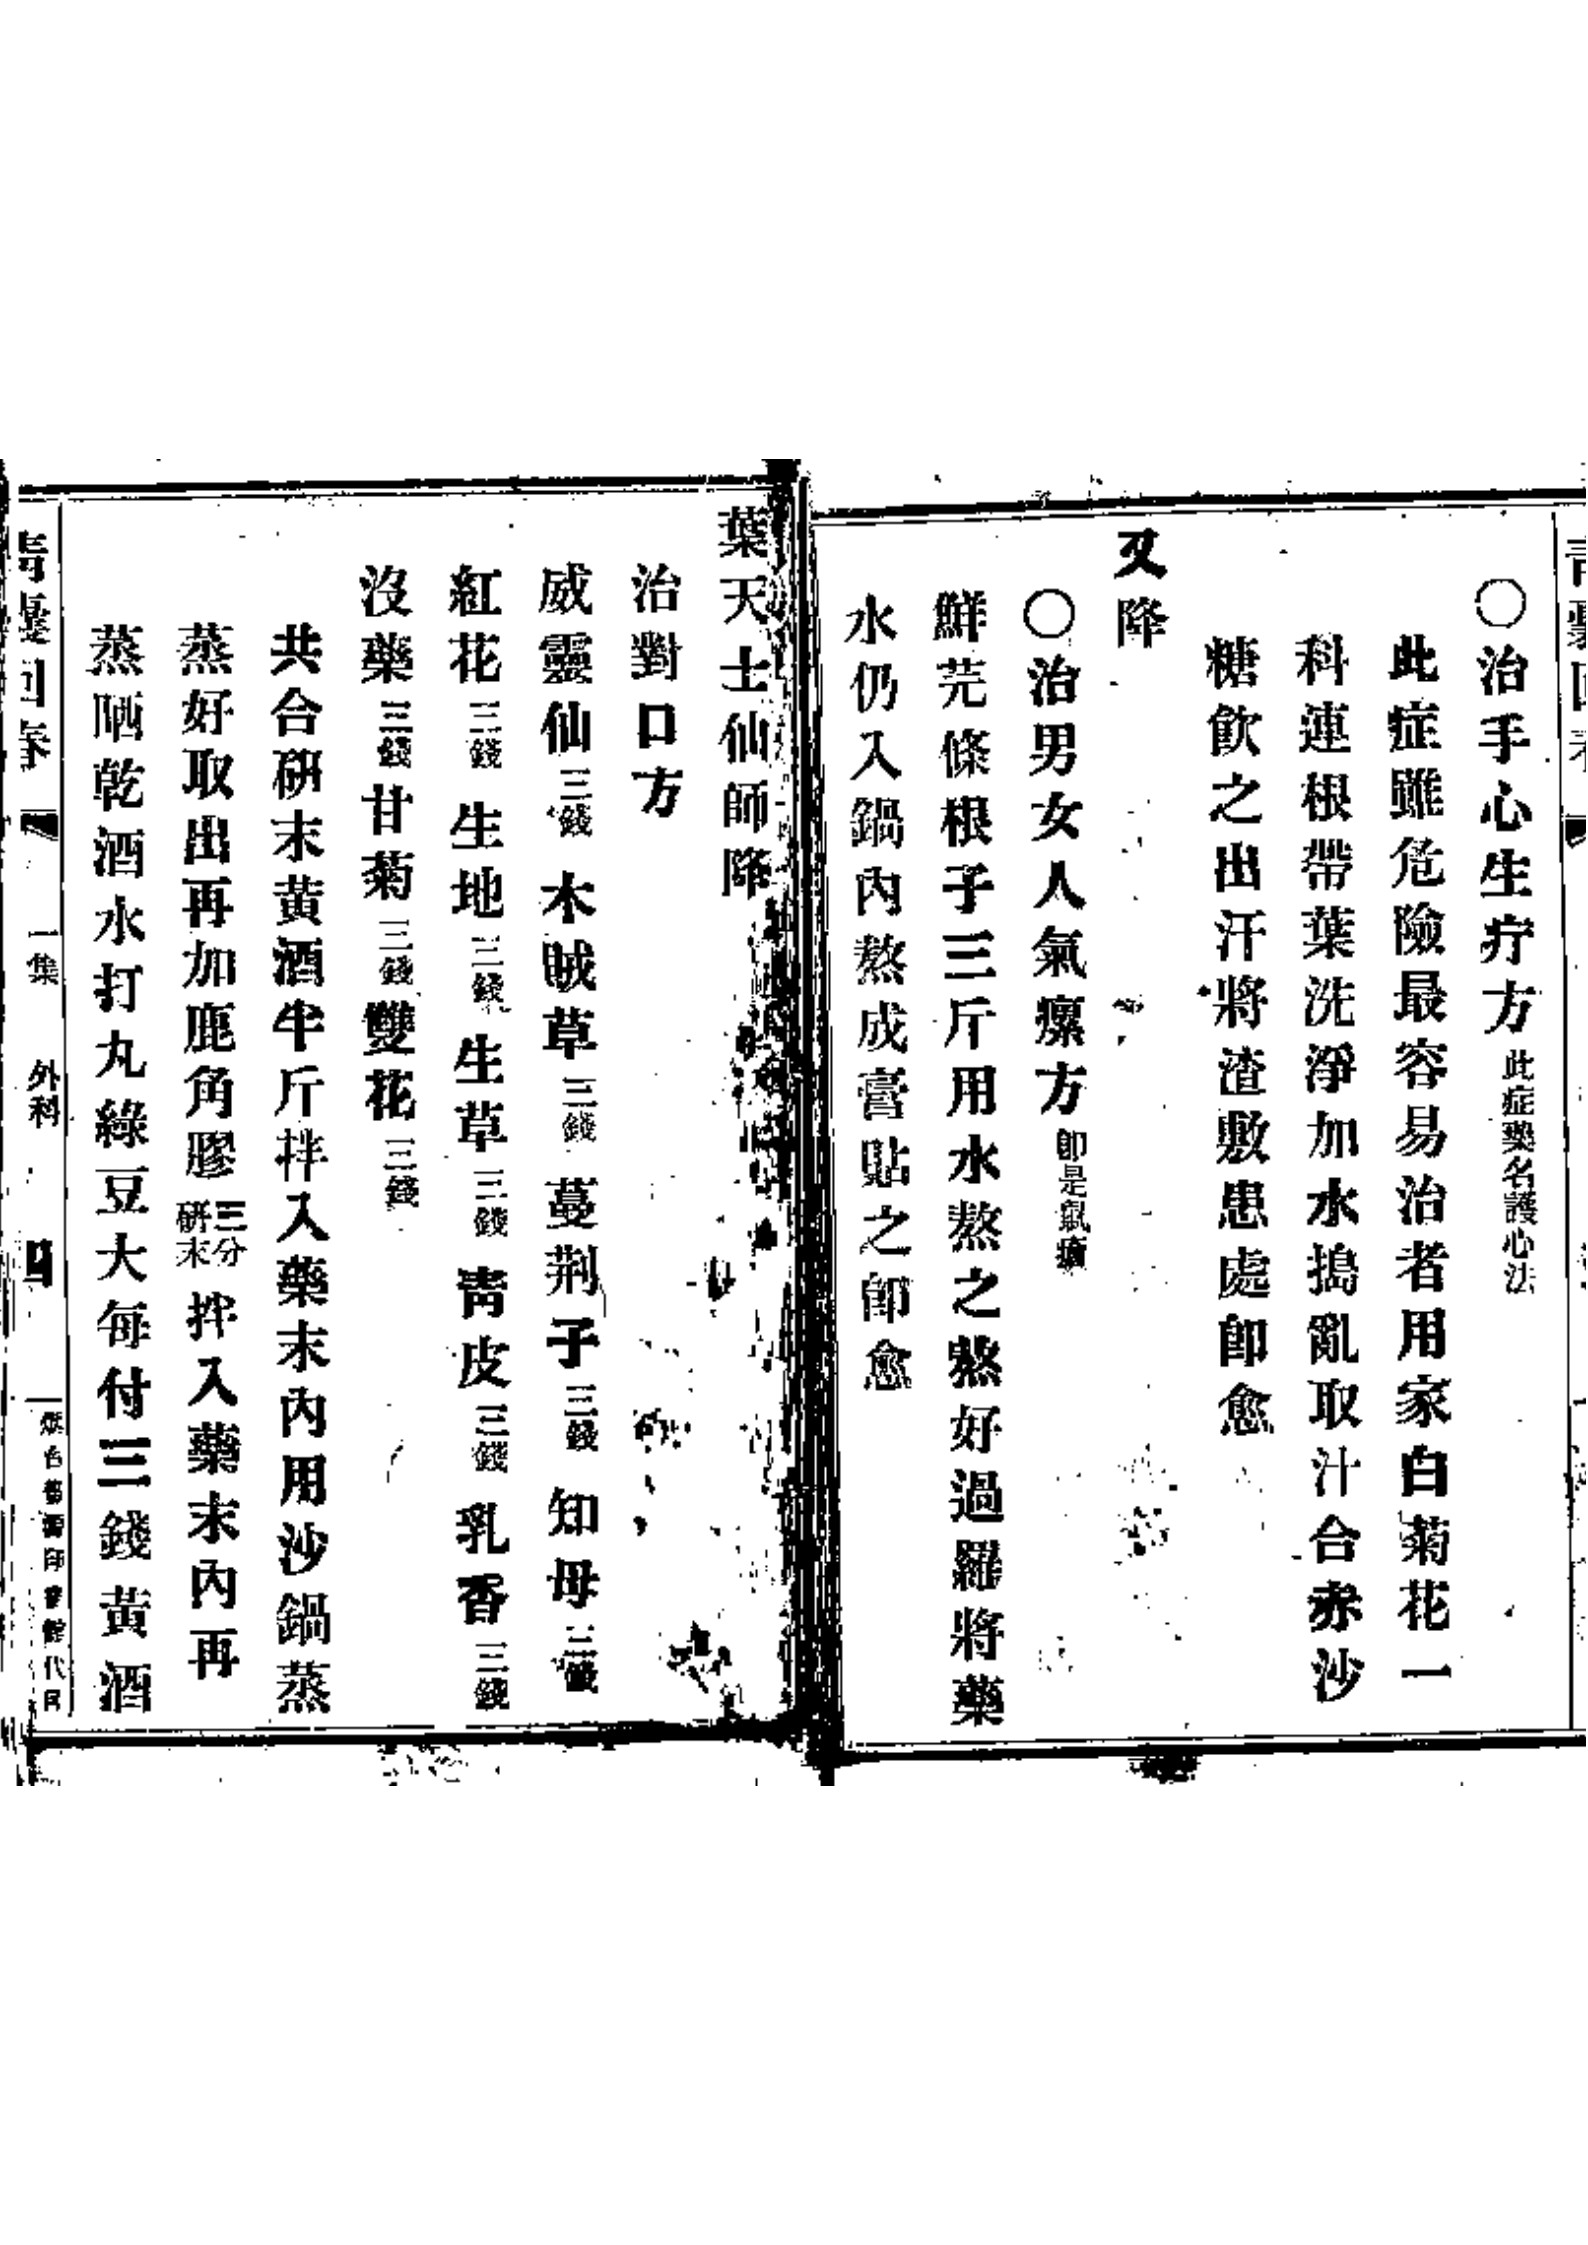 〇治手心生疔方 此症藥名護心法
此症雖危險最容易治者用家白菊花一
科連根帶葉洗淨加水搗亂取汁合赤沙
糖飲之出汗將渣敷患處卽愈
又降
〇治男女人氣瘰方 卽是鼠瘡
鮮芫條根子三斤用水熬之熬好過羅將藥
水仍入鍋內熬成膏貼之卽愈
葉天士仙師降
治對口方
威靈仙三錢 木賊草三錢 蔓荆子三錢 知母三錢
紅花三錢 生地三錢 生草三錢 靑皮三錢 乳香三錢
沒藥三錢 甘菊三錢 雙花三錢
共合硏末黃酒半斤拌入藥末內用沙鍋蒸
蒸好取出再加鹿角膠三分硏末拌入藥末內再
蒸晒乾酒水打丸綠豆大每付三錢黃酒
囘春 一集 外科 四
印書館代